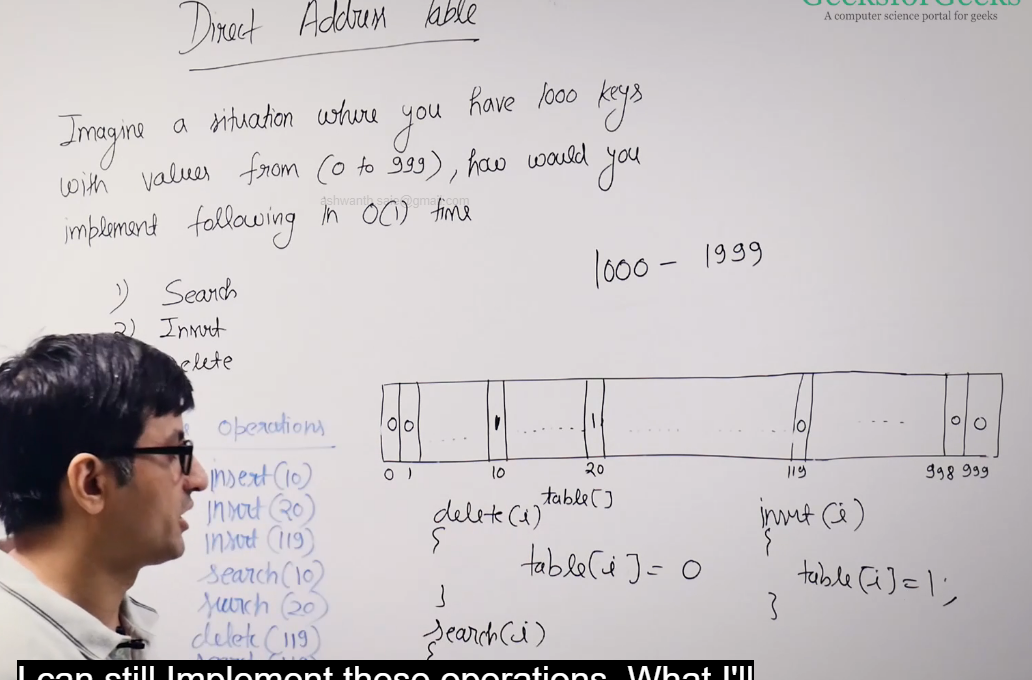 GeeksforGeeks
A computer science portal for geeks
Direct Address Table
Imagine a situation where you have 1000 keys
with values from (0 to 999), how would you
implement following in O(1) time
ashwanth.sale@gmail.com
1000 - 1999
1) Search
2) Insert
elete
operations
insert(10)
insert(20)
insert(119)
search(10)
search(20)
delete(119)
0 0 ..... 1 ....... 1 ....... 0 ..... 0 0
0 1 10 20 119 998 999
table[]
delete(i)
{
table[i] = 0
}
search(i)
{
insert(i)
{
table[i] = 1;
}
I can still Implement these operations. What I'll